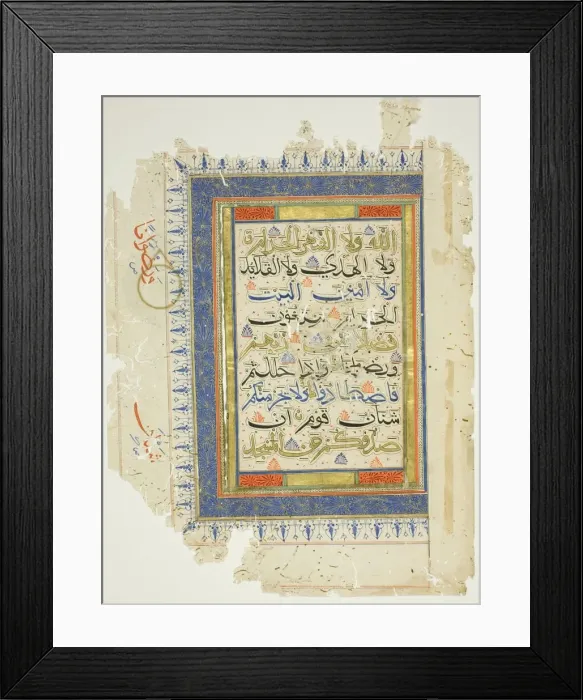 الله ولا الشهر الحرام
ولا الهدي ولا القلائد
ولا امين البيت
الحرام يبتغون
فضلا من ربهم
ورضوانا واذا حللتم
فاصطادوا ولا يجرمنكم
شنان قوم ان
صدوكم عن المسجد
ورضوانا